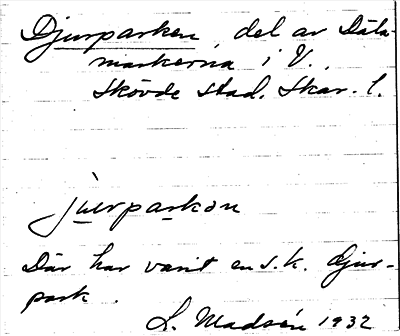 Djurparken, del av Dala-
markerna i V.
Skövde stad. Skar. l.
juurparkan
Där har varit en s.k. djur-
park.
L. Madsén 1932